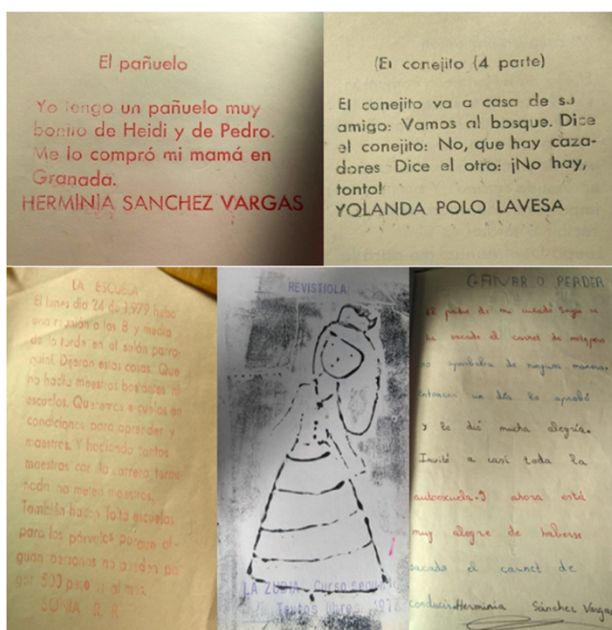 El pañuelo
Yo tengo un pañuelo muy
bonito de Heidi y de Pedro.
Me lo compró mi mamá en
Granada.
HERMINIA SANCHEZ VARGAS
(El conejito (4 parte)
El conejito va a casa de su
amigo: Vamos al bosque. Dice
el conejito: No, que hay caza-
dores. Dice el otro: ¡No hay,
tonto!
YOLANDA POLO LAVESA
LA ESCUELA
El lunes dia 26 de 1,979 hubo
una reunión a las 8 y media
de la tarde en el salón parro-
quial. Dijeron estas cosas. Que
no hacía maestros bastantes ni
escuelas. Queremos escuelas en
condiciones para aprender y
maestros. Y haciendo tantos
maestros con la carrera
nada no meten maestros.
También hacen falta escuelas
para los párvulos porque al-
gunas personas no pueden pa-
gar 500 al mes.
SONIA
REVISTIOLA
LA ZUBIA Curso
Textos libres
GANAR O PERDER
El padre de mi cuñado Sergio se
ha sacado el carnet de
no aprobaba de ninguna manera
entonces un día lo aprobó
y le dió mucha alegría.
Invitó a casi toda la
autoescuela. Y ahora está
muy alegre de haberse
sacado el carnet de
conducir. Herminia Sánchez Vargas